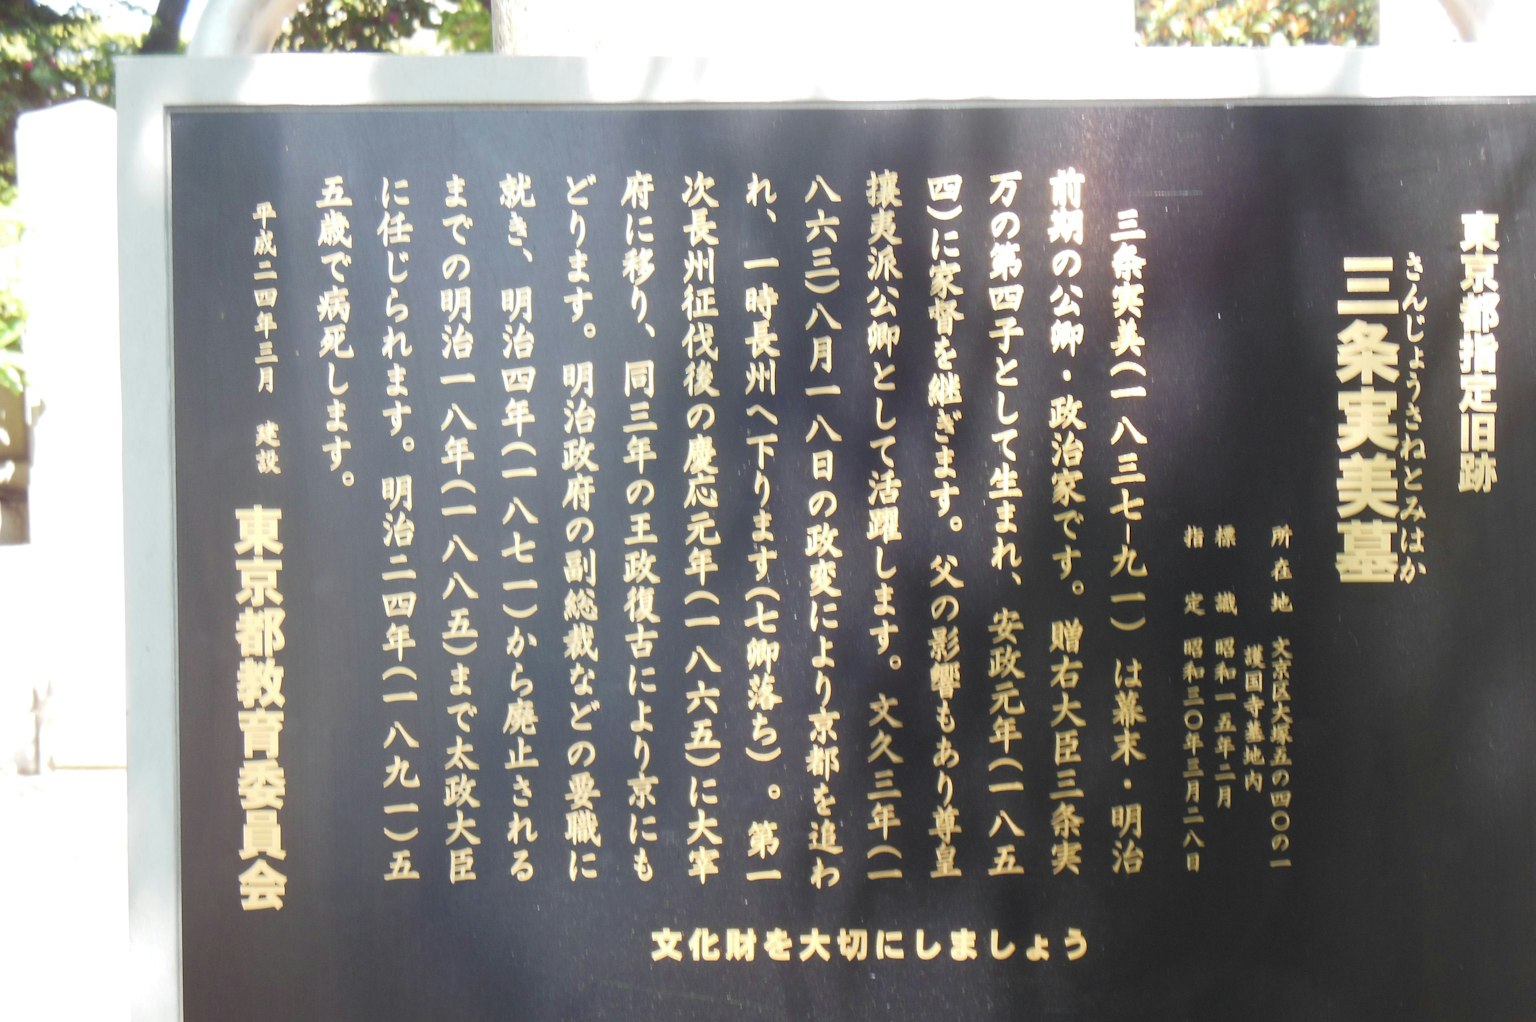 東京都指定旧跡
さんじょうさねとみはか
三条実美墓
所在地 文京区大塚五の四〇の一
護国寺墓地内
標識 昭和一五年二月
指定 昭和三〇年三月二八日
三条実美(一八三七-九一)は幕末・明治
前期の公卿・政治家です。贈右大臣三条実
万の第四子として生まれ、安政元年(一八五
四)に家督を継ぎます。父の影響もあり尊皇
攘夷派公卿として活躍します。文久三年(一
八六三)八月一八日の政変により京都を追わ
れ、一時長州へ下ります(七卿落ち)。第一
次長州征伐後の慶応元年(一八六五)に大宰
府に移り、同三年の王政復古により京にも
どります。明治政府の副総裁などの要職に
就き、明治四年(一八七一)から廃止される
までの明治一八年(一八八五)まで太政大臣
に任じられます。明治二四年(一八九一)五
五歳で病死します。
平成二四年三月 建設
東京都教育委員会
文化財を大切にしましょう